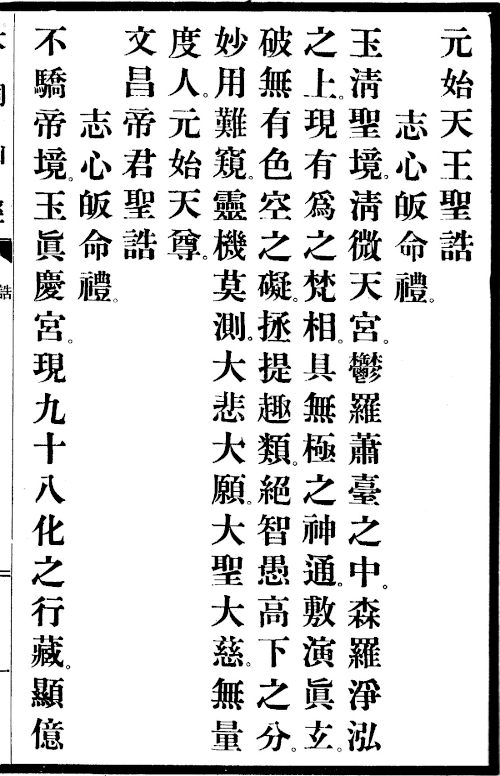 元始天王聖誥
志心皈命禮。
玉淸聖境。淸微天宮。鬱羅蕭臺之中。森羅淨泓
之上。現有爲之梵相。具無極之神通。敷演眞玄。
破無有色空之礙。拯提趣類。絕智愚高下之分。
妙用難窺。靈機莫測。大悲大願。大聖大慈。無量
度人。元始天尊。
文昌帝君聖誥
志心皈命禮。
不驕帝境。玉眞慶宮。現九十八化之行藏。顯億
誥